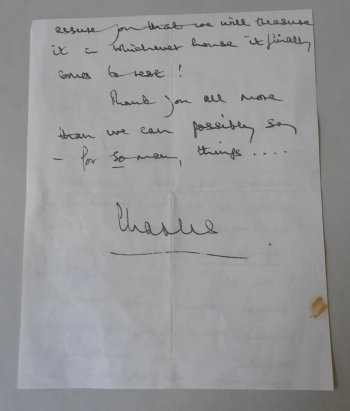 assure you that we will treasure
it in whichever house it finally
comes to rest!
Thank you all more
than we can possibly say
– for so many things ....
Charles